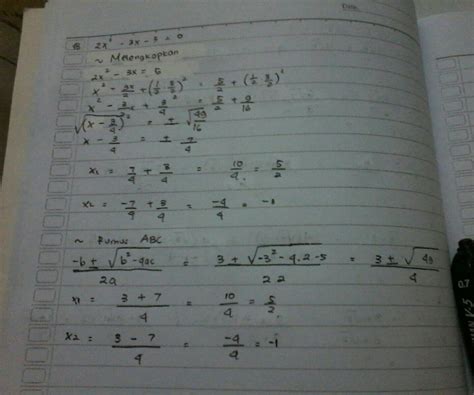 2x² - 3x - 5 = 0
~ Melengkapkan
2x² - 3x = 5
x² - 3x/2 + (1/2 · 3/2)² = 5/2 + (1/2 · 3/2)²
x² - 3/2x + 3/4² = 5/2 + 9/16
√(x - 3/4)² = ± √49/16
x - 3/4 = ± 7/4
x1 = 7/4 + 3/4 = 10/4 = 5/2
x2 = -7/4 + 3/4 = -4/4 = -1
~ Rumus ABC
-b ± √b² - 4ac / 2a = 3 ± √-3² - 4.2.-5 / 2.2 = 3 ± √49 / 4
x1 = 3 + 7 / 4 = 10/4 = 5/2
x2 = 3 - 7 / 4 = -4/4 = -1
0.7